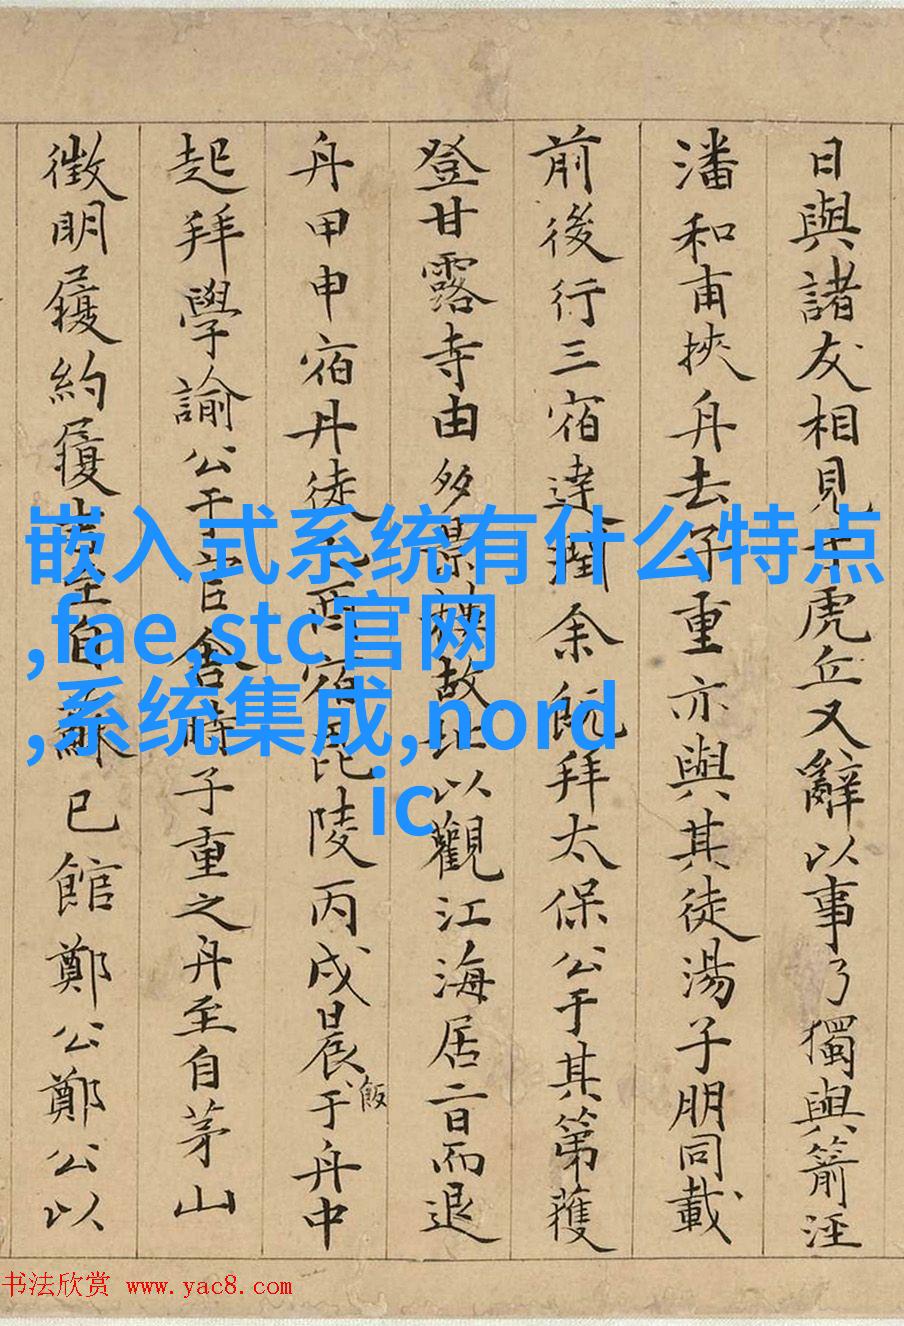 日與諸友相見于虎丘又辭以事乃獨與箭涇
潘和甫挾舟去子重亦與其徒湯子朋同載
前後行三宿達潤余既拜太保公于其第獲
登甘露寺由多景樓故址以觀江海居二日而退
舟甲申宿丹徒乙酉宿毘陵丙戌晨飯于舟中
起拜學諭公于官舍時子重之舟至自茅山
徵明履約履吉至自蘇已館鄭公鄭公以
嵌入式系统有什么特点
,fae,stc官网
,系统集成,nord
ic
书法欣赏 www.yac8.com